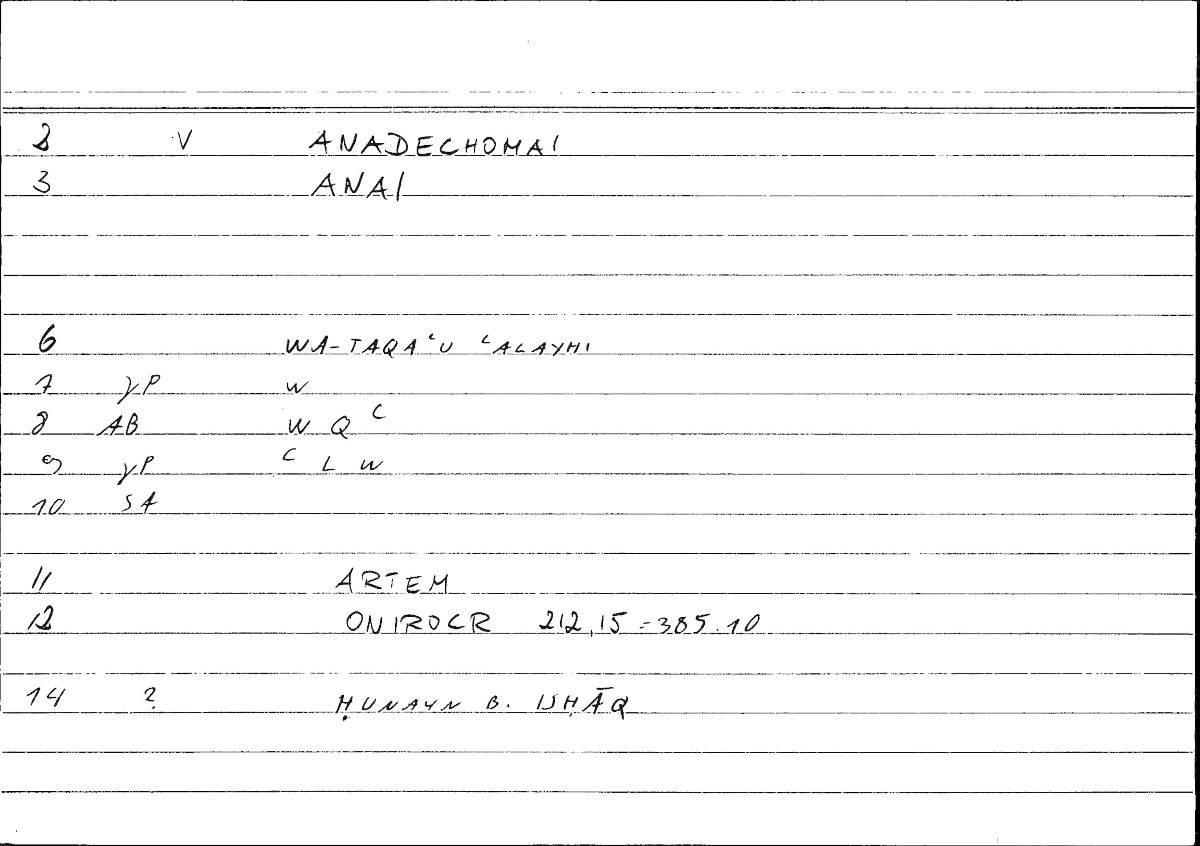 2 V ANADECHOMAI
3 ANAI
6 WA-TAQAʿU ʿALAYHI
7 γP W
8 AB W Q ʿ
9 γP ʿ L W
10 SA
11 ARTEM
12 ONIROCR 212,15=385.10
14 ? ḤUNAYN B. ISḤĀQ